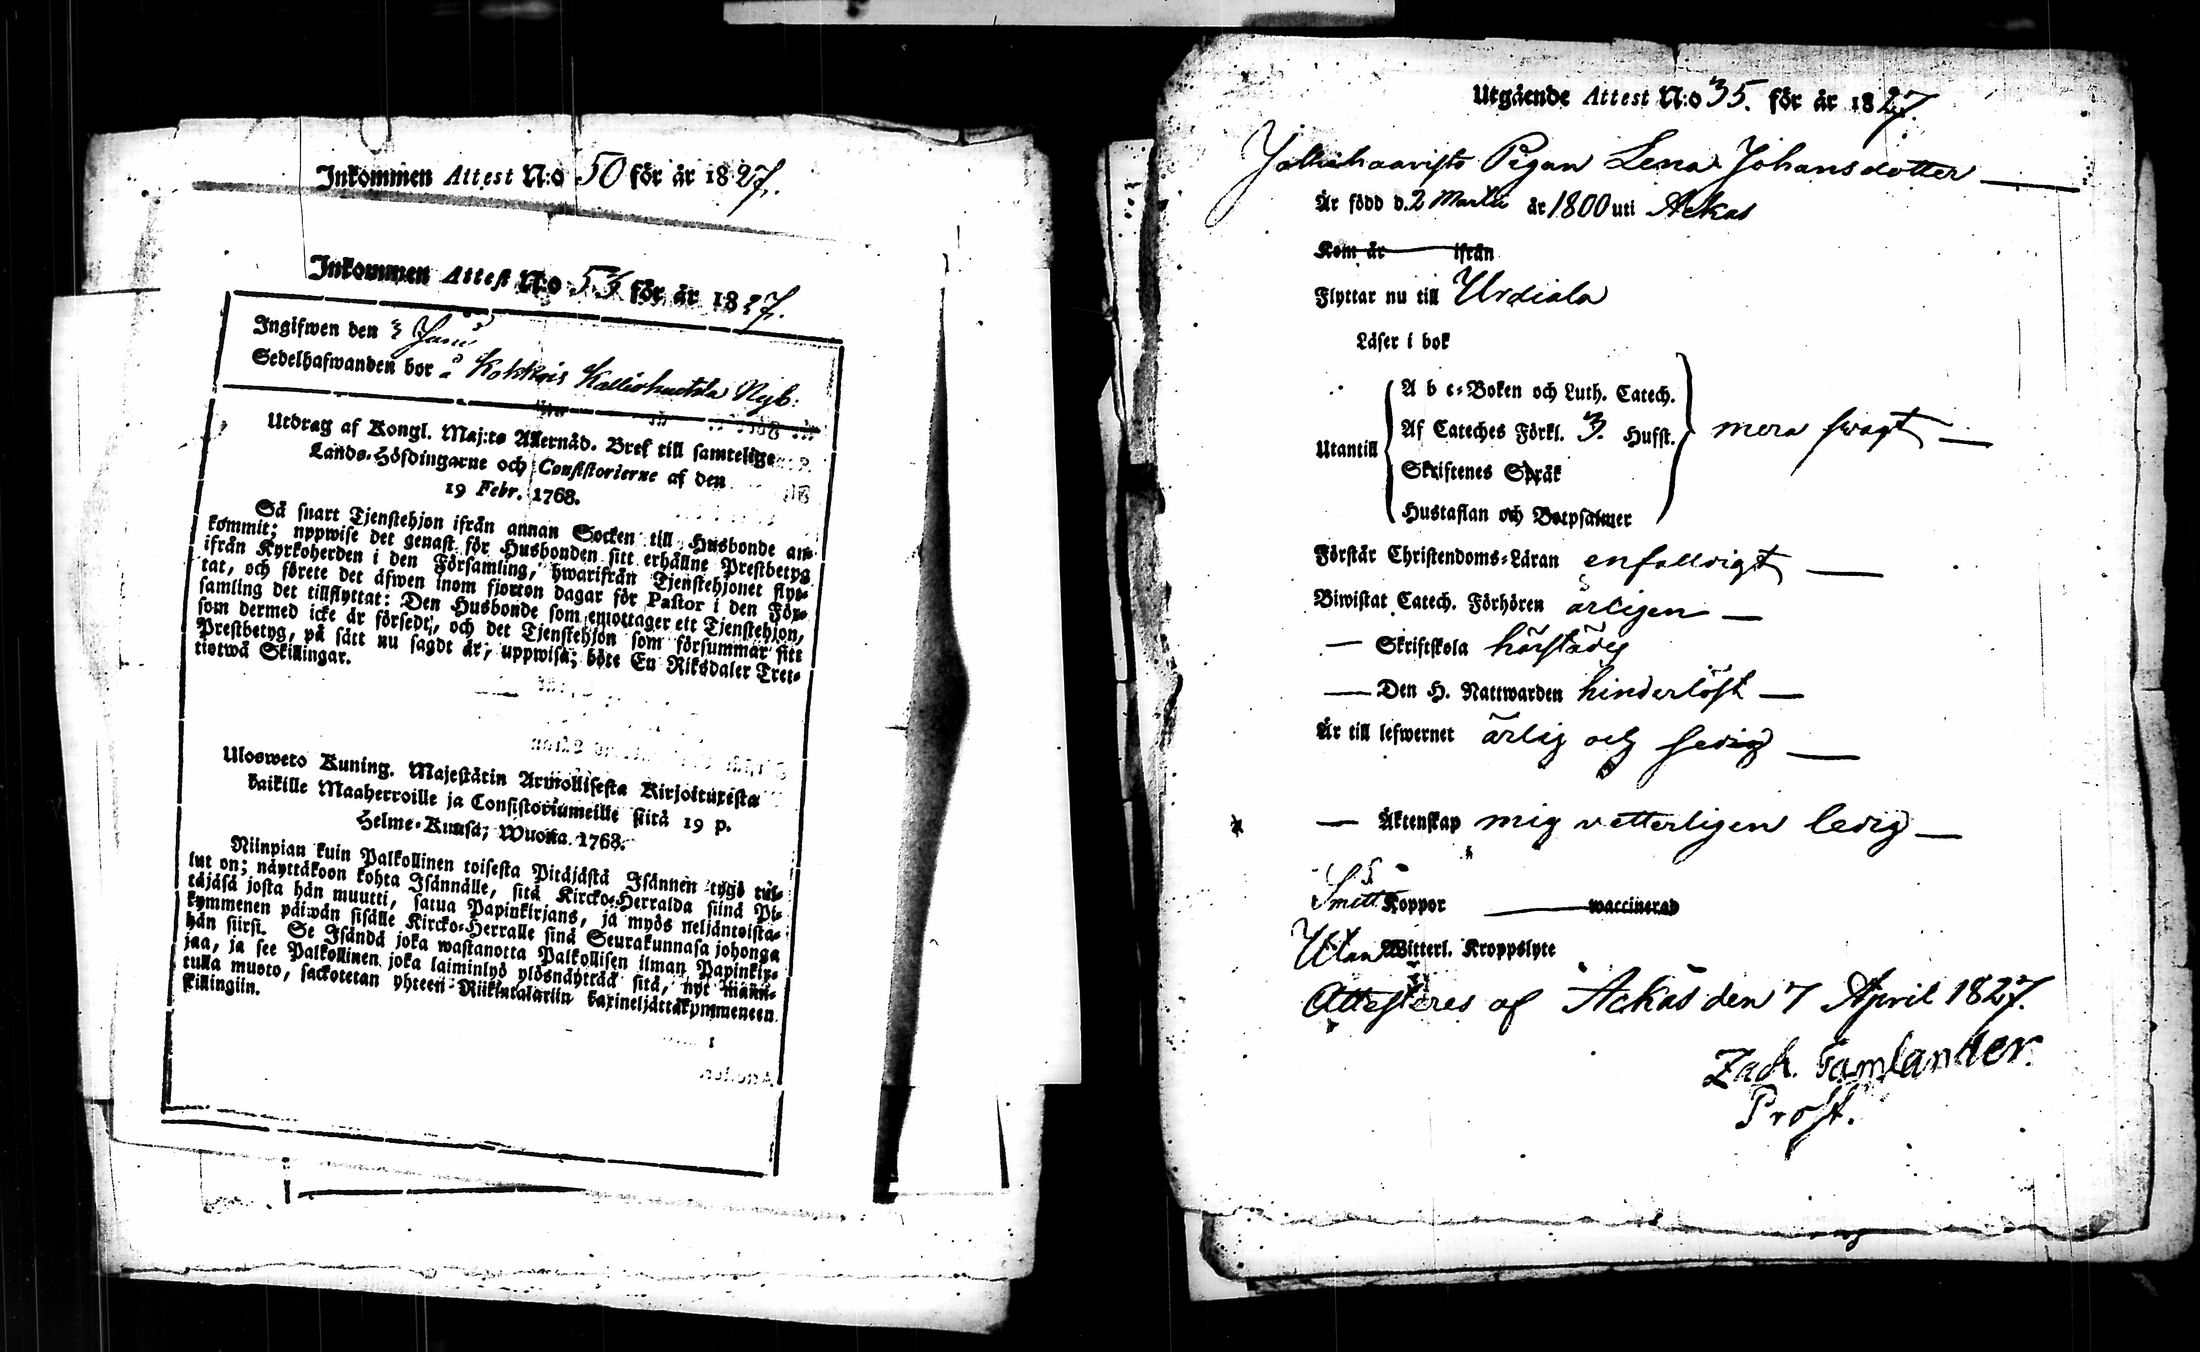 Inkommen Attest N:o 50 för år 1827.
Inkommen Attest N:o 53 för år 1827.
Ingifwen den 3 Junii
Sedelhafwanden bor å Kokkois Kalliohuhta Nyb:
Utdrag af Kongl. Maj:ts Allernåd. Bref till samtelige
Lands-Höfdingarne och Consistorierne af den
19 Febr. 1768.
Så snart Tjenstehjon ifrån annan Socken till Husbonde an-
kommit; uppwise det genast för Husbonden sitt erhållne Prestbetyg
ifrån Kyrkoherden i den Församling, hwarifrån Tjenstehjonet flyt-
tat, och förete det äfwen inom fjorton dagar för Pastor i den För-
samling det tillflyttat: Den Husbonde som emottager ett Tjenstehjon,
som dermed icke är försedt, och det Tjenstehjon som försummar sitt
Prestbetyg, på sätt nu sagdt är, uppwisa; böte En Riksdaler Tret-
tiotwå Skillingar.
Ulosweto Kuning. Majestätin Armollisesta Kirjoituxesta
kaikille Maaherroille ja Consistoriumeille siitä 19 p.
Helme-Kuusa, Wuona 1768.
Niinpian kuin Palkollinen toisesta Pitäjästä Isännen tygö tul-
lut on; näyttäkoon kohta Isännälle, sitä Kircko-Herralda siinä Pi-
täjäsä josta hän muutti, saatua Papinkirjans, ja myös neljäntoista-
kymmenen päiwän sisälle Kircko-Herralle siinä Seurakunnasa johonga
hän siirsi. Se Isändä joka wastanotta Palkollisen ilman Papinkir-
jaa, ja see Palkollinen joka laiminlyö ylösnäyttää sitä, nyt maini-
tulla muoto, sackotetan yhteen Riikintalariin kaxineljättäkymmeneen
skillingiin.
Utgående Attest N:o 35. för år 1827.
Pigan Lena Johansdotter
Är född d. 2 Martii år 1800 uti Ackas
Kom år ifrån
Flyttar nu till Urdiala
Läser i bok
A b c-Boken och Luth. Catech.
Utantill Af Cateches Förkl. 3. Hufst. mera swagt
Skriftenes Språk
Hustaflan och Botpsalmer
Förstår Christendoms-Läran enfalldigt
Biwistat Catech. Förhören årligen
Skriftskola härstädes
Den H. Nattwarden hinderlöst
Är till lefwernet ärlig och sedig
Äktenskap mig vetterligen ledig
Smitt Koppor waccinerad
Utan Witterl. Kroppslyte
Attesteres af Ackas den 7 April 1827.
Zach. Gamlander.
Prost.